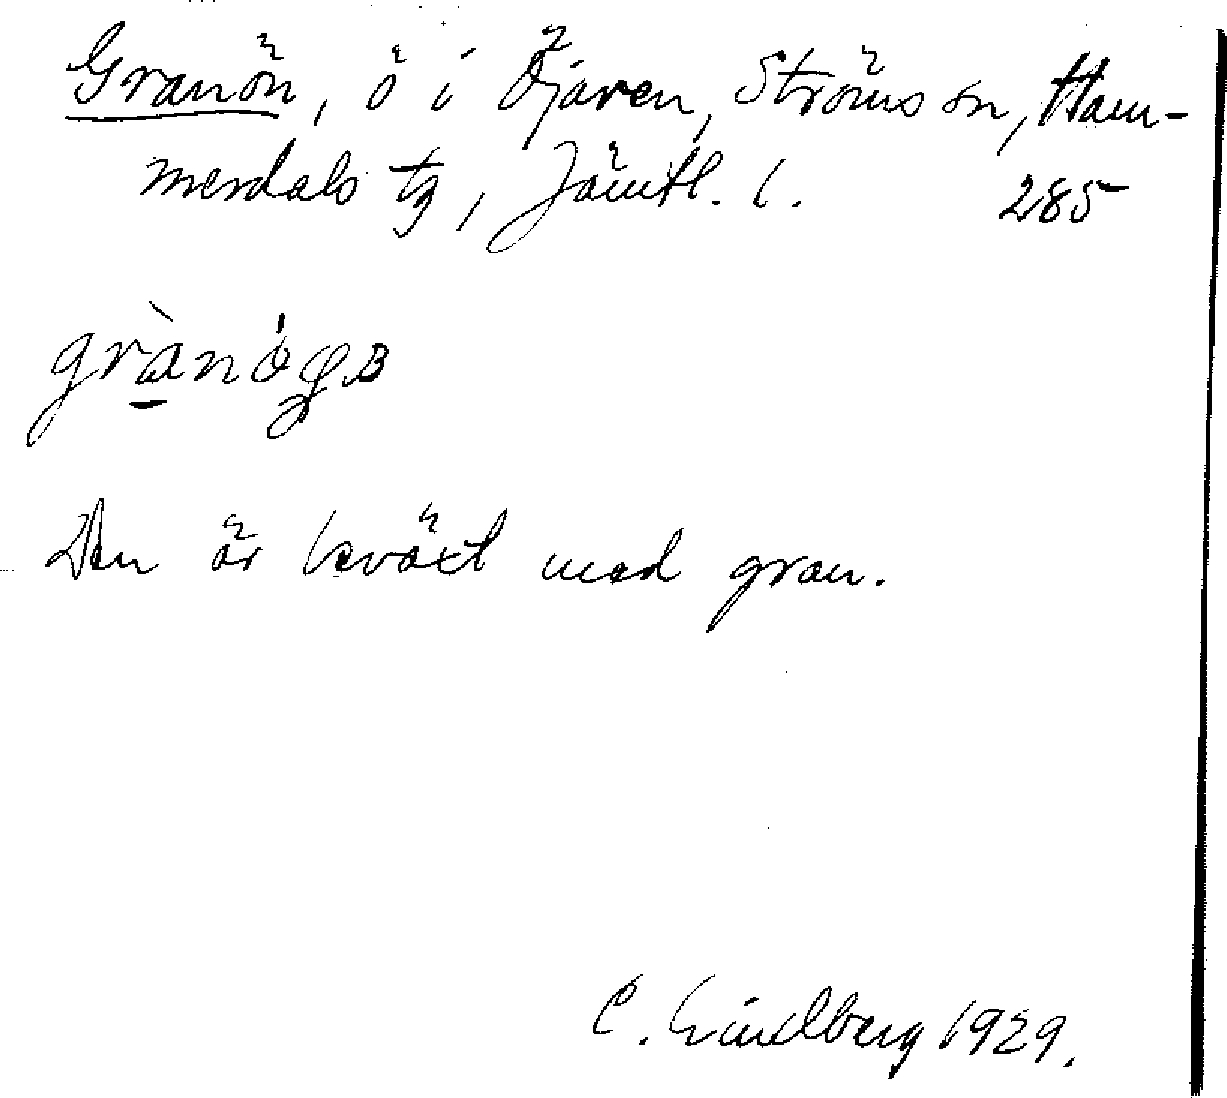 Granön, ö i Öjaren, Ströms sn, Ham-
merdals tg, Jämtl. l. 285
Den är beväxt med gran.
C. Lindberg 1929.